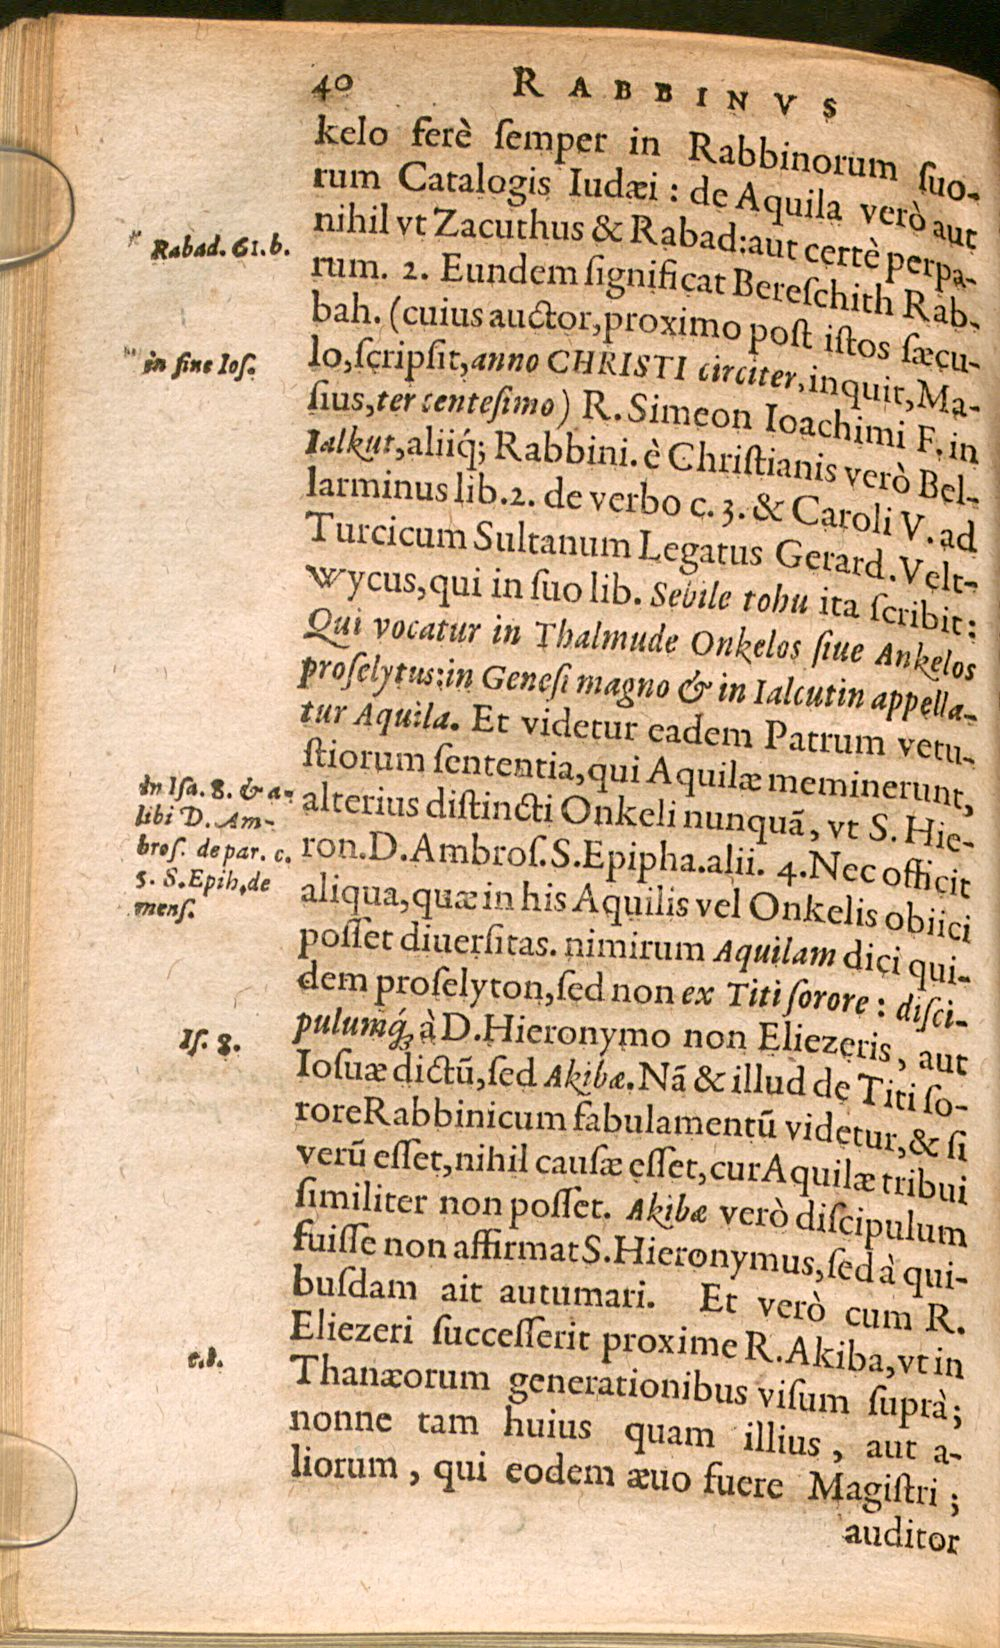 40 RABBINVS
kelo ferè ſemper in Rabbinorum ſuo-
rum Catalogis Iudæi : de Aquila verò aut
nihil vt Zacuthus & Rabad: aut certè perpa-
Rabad. 61. b.
rum. 2. Eundem ſignificat Bereſchith Rab-
bah. (cuius auctor, proximo poſt iſtos ſæcu-
lo, ſcripſit, anno CHRISTI circiter, inquit, Ma-
in fine Ioſ.
ſius, ter centeſimo) R. Simeon Ioachimi F. in
Ialkut, aliiq́; Rabbini. è Chriſtianis verò Bel-
larminus lib. 2. de verbo c. 3. & Caroli V. ad
Turcicum Sultanum Legatus Gerard. Velt-
wycus, qui in ſuo lib. Sebile tohu ita ſcribit:
Qui vocatur in Thalmude Onkelos ſiue Ankelos
proſelytus: in Geneſi magno & in Ialcutin appella-
tur Aquila. Et videtur eadem Patrum vetu-
ſtiorum ſententia, qui Aquilæ meminerunt,
In Iſa. 8. & a-
libi D. Am-
broſ. de par. c.
5. S. Epih. de
menſ.
alterius diſtincti Onkeli nunquã, vt S. Hie-
ron. D. Ambroſ. S. Epipha. alii. 4. Nec officit
aliqua, quæ in his Aquilis vel Onkelis obiici
poſſet diuerſitas. nimirum Aquilam dici qui-
dem proſelyton, ſed non ex Titi ſorore : diſci-
pulumq́; à D. Hieronymo non Eliezeris, aut
Iſ. 8.
Ioſuæ dictũ, ſed Akibæ. Nã & illud de Titi ſo-
rore Rabbinicum fabulamentũ videtur, & ſi
verũ eſſet, nihil cauſæ eſſet, cur Aquilæ tribui
ſimiliter non poſſet. Akibæ verò diſcipulum
fuiſſe non affirmat S. Hieronymus, ſed à qui-
buſdam ait autumari. Et verò cum R.
Eliezeri ſucceſſerit proxime R. Akiba, vt in
Thanæorum generationibus viſum ſuprà;
nonne tam huius quam illius, aut a-
liorum, qui eodem æuo fuere Magiſtri;
auditor